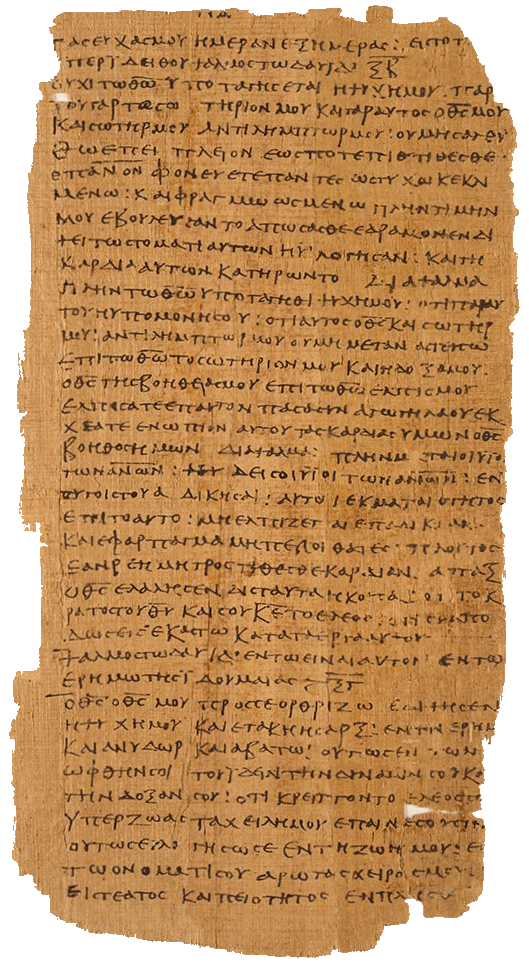 ΤΑΣ ΕΥΧΑΣ ΜΟΥ ΗΜΕΡΑΝ ΕΞ ΗΜΕΡΑΣ: ΕΙΣ ΤΟ
ΥΠΕΡ ΙΔΕΙΘΟΥ ΨΑΛΜΟΣ ΤΩ ΔΑΥΙΔ ΞΒ
ΟΥΧΙ ΤΩ ΘΩ ΥΠΟΤΑΓΗΣΕΤΑΙ Η ΨΥΧΗ ΜΟΥ: ΠΑΡ
ΤΟΥ ΓΑΡ ΤΟ ΣΩΤΗΡΙΟΝ ΜΟΥ ΚΑΙ ΓΑΡ ΑΥΤΟΣ Ο ΘΣ ΜΟΥ
ΚΑΙ ΣΩΤΗΡ ΜΟΥ ΑΝΤΙΛΗΜΠΤΩΡ ΜΟΥ: ΟΥ ΜΗ ΣΑΛΕΥ
ΘΩ ΕΠΙ ΠΛΕΙΟΝ ΕΩΣ ΠΟΤΕ ΕΠΙΤΙΘΕΣΘΕ
ΕΠ ΑΝΟΝ ΦΟΝΕΥΕΤΕ ΠΑΝΤΕΣ ΩΣ ΤΥΧΩ ΚΕΚΛΙ
ΜΕΝΩ: ΚΑΙ ΦΡΑΓΜΩ ΩΣΜΕΝΩ ΠΛΗΝ ΤΙΜΗΝ
ΜΟΥ ΕΒΟΥΛΕΥΣΑΝΤΟ ΑΠΩΣΑΣΘΕ ΕΔΡΑΜΟΝ ΕΝ ΔΙ
ΨΕΙ ΤΩ ΣΤΟΜΑΤΙ ΑΥΤΩΝ ΗΥΛΟΓΗΣΑΝ: ΚΑΙ ΤΗ
ΚΑΡΔΙΑ ΑΥΤΩΝ ΚΑΤΗΡΩΝΤΟ ΔΙΑΨΑΛΜΑ
ΠΛΗΝ ΤΩ ΘΩ ΥΠΟΤΑΓΗΘΙ Η ΨΥΧΗ ΜΟΥ: ΟΤΙ ΠΑΡ ΑΥ
ΤΟΥ Η ΥΠΟΜΟΝΗ ΣΟΥ: ΟΤΙ ΑΥΤΟΣ Ο ΘΣ ΚΑΙ ΣΩΤΗΡ
ΜΟΥ: ΑΝΤΙΛΗΜΠΤΩΡ ΜΟΥ ΟΥ ΜΗ ΜΕΤΑΝΑΣΤΕΥΣΩ
ΕΠΙ ΤΩ ΘΩ ΤΟ ΣΩΤΗΡΙΟΝ ΜΟΥ ΚΑΙ Η ΔΟΞΑ ΜΟΥ:
Ο ΘΣ ΤΗΣ ΒΟΗΘΕΙΑΣ ΜΟΥ ΕΠΙ ΤΩ ΘΩ ΕΛΠΙΣ ΜΟΥ
ΕΛΠΙΣΑΤΕ ΕΠ ΑΥΤΟΝ ΠΑΣΑ ΣΥΝΑΓΩΓΗ ΛΑΟΥ ΕΚ
ΧΕΑΤΕ ΕΝΩΠΙΟΝ ΑΥΤΟΥ ΤΑΣ ΚΑΡΔΙΑΣ ΥΜΩΝ Ο ΘΣ
ΒΟΗΘΟΣ ΗΜΩΝ ΔΙΑΨΑΛΜΑ: ΠΛΗΝ ΜΑΤΑΙΟΙ ΟΙ ΥΙΟΙ
ΤΩΝ ΑΝΩΝ: ΨΕΥΔΕΙΣ ΟΙ ΥΙΟΙ ΤΩΝ ΑΝΩΝ: ΕΝ
ΖΥΓΟΙΣ ΤΟΥ ΑΔΙΚΗΣΑΙ: ΑΥΤΟΙ ΕΚ ΜΑΤΑΙΟΤΗΤΟΣ
ΕΠΙ ΤΟ ΑΥΤΟ: ΜΗ ΕΛΠΙΖΕΤΑΙ ΕΠ ΑΔΙΚΙΑΝ
ΚΑΙ ΕΦ ΑΡΠΑΓΜΑ ΜΗ ΕΠΙΠΟΘΑΤΕ: ΠΛΟΥΤΟΣ
ΕΑΝ ΡΕΗ ΜΗ ΠΡΟΣΤΙΘΕΣΘΕ ΚΑΡΔΙΑΝ. ΑΠΑΞ
Ο ΘΣ ΕΛΑΛΗΣΕΝ ΔΙΣ ΤΑΥΤΑ ΗΚΟΥΣΑ: ΟΤΙ ΤΟ Κ
ΡΑΤΟΣ ΤΟΥ ΘΥ ΚΑΙ ΣΟΥ ΚΕ ΤΟ ΕΛΕΟΣ: ΟΤΙ ΣΥ ΑΠΟ
ΔΩΣΕΙΣ ΕΚΑΣΤΩ ΚΑΤΑ ΤΑ ΕΡΓΑ ΑΥΤΟΥ
ΨΑΛΜΟΣ ΤΩ ΔΑΥΙΔ: ΕΝ ΤΩ ΕΙΝΑΙ ΑΥΤΟΝ ΕΝ ΤΩ
ΕΡΗΜΩ ΤΗΣ ΙΔΟΥΜΑΙΑΣ ΞΓ
Ο ΘΣ Ο ΘΣ ΜΟΥ ΠΡΟΣ ΣΕ ΟΡΘΡΙΖΩ ΕΔΙΨΗΣΕΝ
Η ΨΥΧΗ ΜΟΥ ΚΑΙ ΕΤΑΚΗ Η ΣΑΡΞ: ΕΝ ΓΗ ΕΡΗΜ
ΚΑΙ ΑΝΥΔΩΡ ΚΑΙ ΑΒΑΤΩ: ΟΥΤΩΣ ΕΝ
ΩΦΘΗΝ ΣΟΙ ΤΟΥ ΙΔΕΝ ΤΗΝ ΔΥΝΑΜΙΝ ΣΟΥ ΚΑ
ΤΗΝ ΔΟΞΑΝ ΣΟΥ: ΟΤΙ ΚΡΕΙΤΤΟΝ ΤΟ ΕΛΕΟΣ ΣΟ
ΥΠΕΡ ΖΩΑΣ ΤΑ ΧΕΙΛΗ ΜΟΥ ΕΠΑΙΝΕΣΟΥΣΙΝ
ΟΥΤΩΣ ΕΥΛΟΓΗΣΩ ΣΕ ΕΝ ΤΗ ΖΩΗ ΜΟΥ: Ε
ΤΩ ΟΝΟΜΑΤΙ ΣΟΥ ΑΡΩ ΤΑΣ ΧΕΙΡΟΣ ΜΟΥ
ΕΙ ΣΤΕΑΤΟΣ ΚΑΙ ΠΕΙΟΤΗΤΟΣ ΕΝΠΛΗΣ